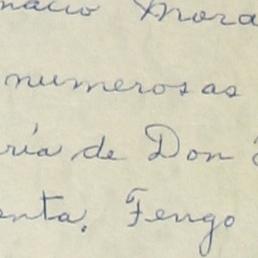 nacio Mora
numerosas
ría de Don
enta. Fengo